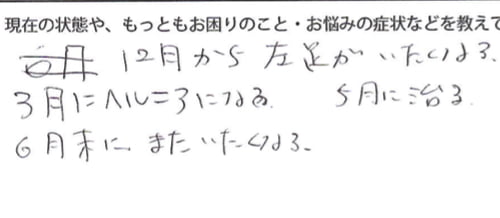 現在の状態や、もっともお困りのこと・お悩みの症状などを教えて
6月 12月から 左足が いたくなる、
3月にヘルニアになる。 5月に治る。
6月末に またいたくなる。